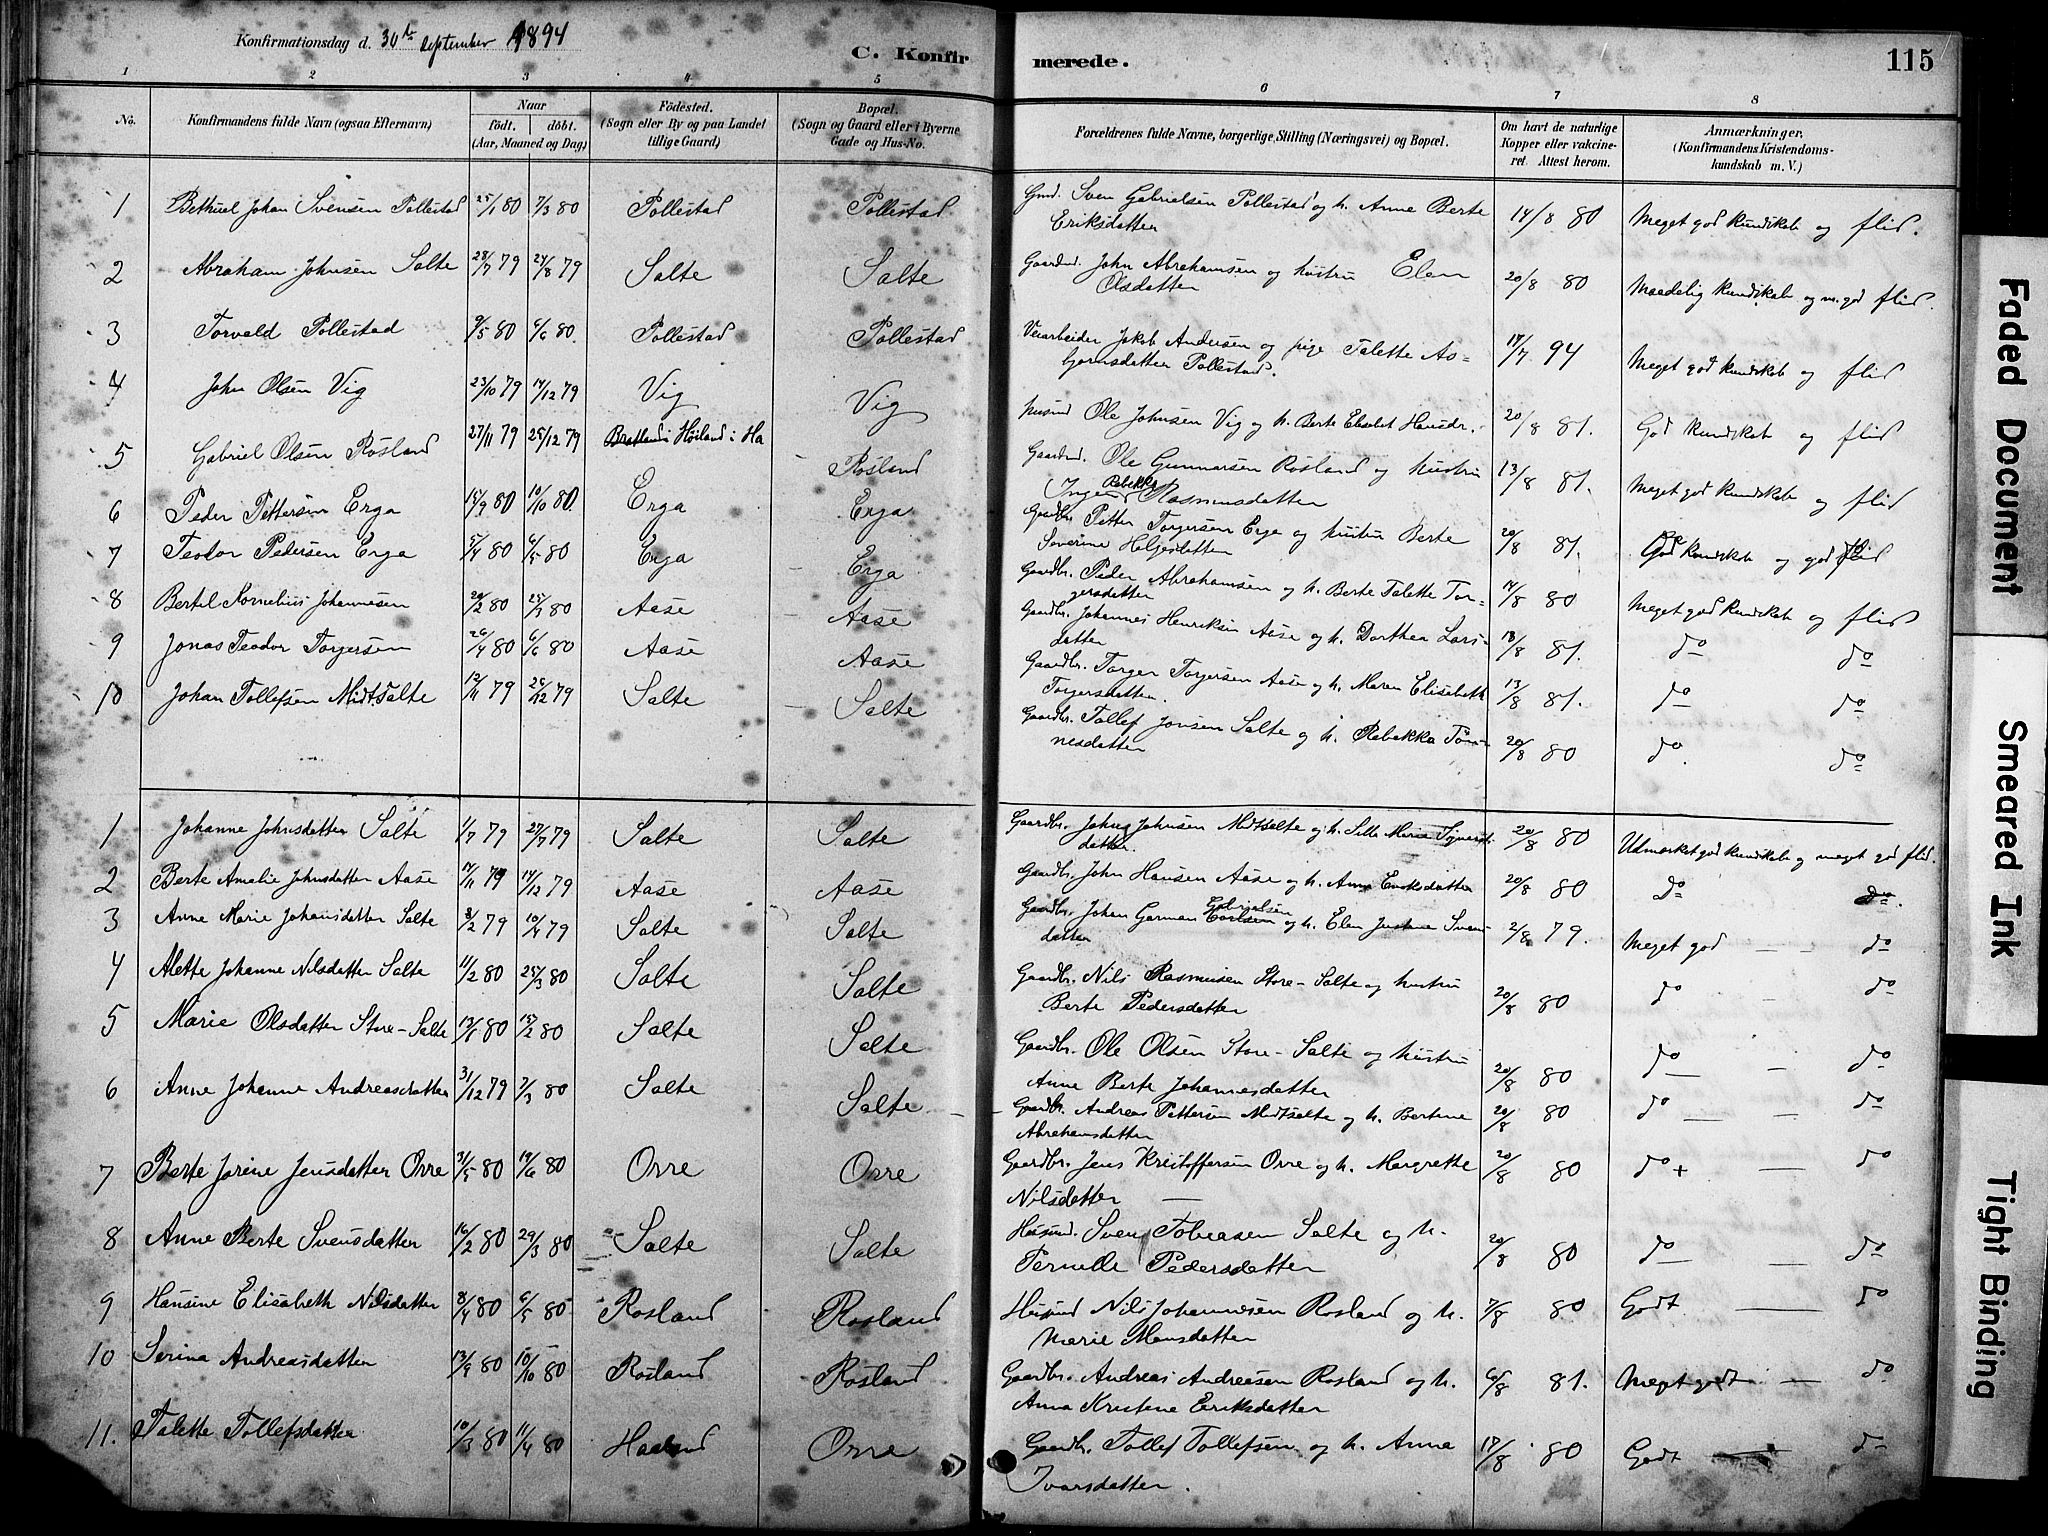 Konfirmationsdag d. 30te September 1894
C. Konfirmerede.
115
1 2 3 4 5 6 7 8
No.
Konfirmandens fulde Navn (ogsaa Efternavn)
Naar
født. døbt.
(Aar, Maaned og Dag)
Fødested.
(Sogn eller By og paa Landet
tillige Gaard)
Bopæl.
(Sogn og Gaard eller i Byerne
Gade og Hus-No.
Forældrenes fulde Navne, borgerlige Stilling (Næringsvei) og Bopæl.
Om havt de naturlige
Kopper eller vakcine-
ret. Attest herom.
Anmærkninger.
(Konfirmandens Kristendoms-
kundskab m. V.)
1 Bethuel Johan Svensen Pollestad 25/1 80 7/3 80 Pollestad Pollestad Gmd. Sven Gabrielsen Pollestad og h. Anne Berte 14/8 80 Meget god kundskab og flid.
Eriksdatter
2 Abraham Johnsen Salte 28/7 79 24/8 79 Salte Salte Gaardmd. John Abrahamsen og hustru Elen 20/8 80 Maadelig kundskab og m. god flid.
Olsdatter
3 Torvald Pollestad 9/5 80 6/6 80 Pollestad Pollestad Veiarbeider Jakob Andersen og pige Talette As- 17/7 94 Meget god kundskab og flid
bjørnsdatter Pollestad.
4 John Olsen Vig 23/10 79 14/12 79 Vig Vig Husmd Ole Johnsen Vig og h. Berte Elisabet Hansdr. 20/8 81. God kundskab og flid
5 Gabriel Olsen Rosland 27/11 79 25/12 79 Bratland i Høiland i Ha Rosland Gaardmd. Ole Gunnarsen Rosland og hustru 13/8 81. Meget god kundskab og flid
Inger Rebekka Rasmusdatter
6 Peder Pettersen Erga 15/9 80 10/10 80. Erga Erga Gaardbr. Petter Torgersen Erga og hustru Berte 20/8 81. God kundskab og god flid
Severine Helgesdatter
7 Teodor Pedersen Erga 5/4 80 6/5 80 Erga Erga Gaardbr. Peder Abrahamsen og h. Berte Talette Tor- 17/8 80 Meget god kundskab og flid
gersdatter
8 Bertel Kornelius Johannesen 20/2 80 25/3 80 Aase Aase Gaardbr. Johannes Henriksen Aase og h. Dorthea Lars- 18/8 81. do do
datter
9 Jonas Teodor Torgersen 26/4 80 6/6 80 Aase Aase Gaardbr. Torger Torgersen Aase og h. Maren Elisabeth 13/8 81. do do
Torgersdatter.
10 Johan Tollefsen Midtsalte 12/11 79 26/12 79 Salte Salte Gaardbr. Tollef Jonsen Salte og h. Rebekka Tøn- 20/8 80 do. do
nesdatter
1 Johanne Johnsdatter Salte 1/7 79 27/7 79 Salte Salte Gaardbr. John Johnsen Midtsalte og h. Sille Marie Sivertsdatter. 20/8 80 Udmærket god kundskab og meget god flid.
2 Berte Amalie Johnsdatter Aase 17/11 79 14/12 79 Aase Aase Gaardbr. John Hansen Aase og h. Anna Eriksdatter 20/8 80 do do.
3 Anne Marie Johansdatter Salte 8/2 79 10/4 79 Salte Salte Gaardbr. Johan Garman Gabrielsen og h. Elen Justine Svens- 2/8 79. Meget god — do
datter
4 Alette Johanne Nilsdatter Salte 11/2 80 25/3 80 Salte Salte Gaardbr. Nils Rasmusen Store-Salte og hustru 20/8 80 do — do
Berte Pedersdatter
5 Marie Olsdatter Store-Salte 13/1 80 15/2 80 Salte Salte Gaardbr. Ole Olsen Store-Salte og hustru 20/8 80 do — do
Anne Berte Johannesdatter
6 Anne Johanne Andreasdatter 31/12 79 7/3 80 Salte Salte Gaardbr. Andreas Pettersen Midtsalte og h. Bertine 20/8 80 do — do
Abrahamsdatter
7 Berte Jorine Jensdatter Orre 31/5 80 19/6 80 Orre Orre Gaardbr. Jens Kristoffersen Orre og h. Margrette 20/8 80 do + — do
Nilsdatter
8 Anne Berte Svensdatter 16/2 80 29/3 80 Salte Salte Husmd. Sven Tobiasen Salte og h. 20/8 80 do — do
Pernille Pedersdatter
9 Hansine Elisabeth Nilsdatter 8/4 80 6/5 80 Rosland Rosland Husmd Nils Johannesen Rosland og h. 7/8 80 Godt — do
Marie Monsdatter
10 Serina Andreasdatter 13/9 80 10/10 80 Rosland Rosland Gaardbr. Andreas Andreasen Rosland og h. 6/8 81. Meget godt — do
Anna Kristine Eriksdatter
11. Talette Tollefsdatter 10/3 80 11/4 80 Haaland Orre Gaardbr. Tollef Tollefsen og h. Anna 17/8 80 Godt — do
Ivarsdatter.
Faded Document
Smeared Ink
Tight Binding